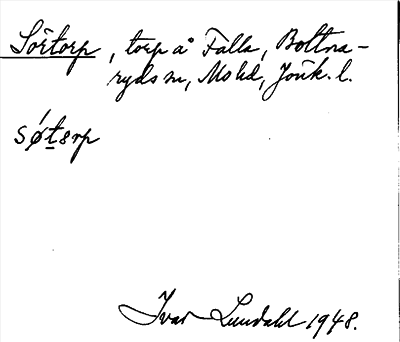 Sörtorp, torp å Falla, Bottna-
ryds sn, Mo hd, Jönk. l.
søt̲ərp
Ivar Lundahl 1948.